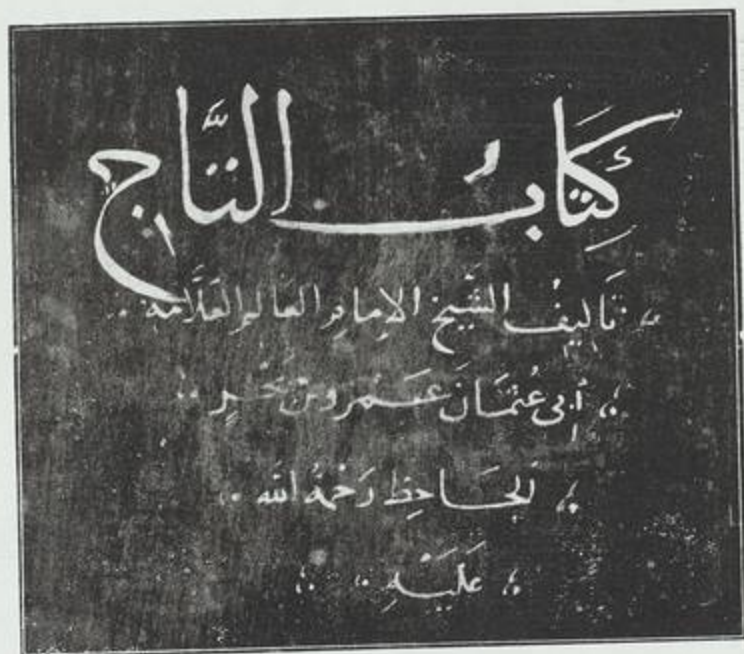 كِتَابُ التَّاجِ
تَالِيفُ الشَّيْخِ الاِمامِ العَالِمِ العَلَّامَة
أَبِي عُثمَانَ عَمْرو بن بَحْرٍ
الجَاحِظ رَحْمَةُ الله
عَلَيْهِ